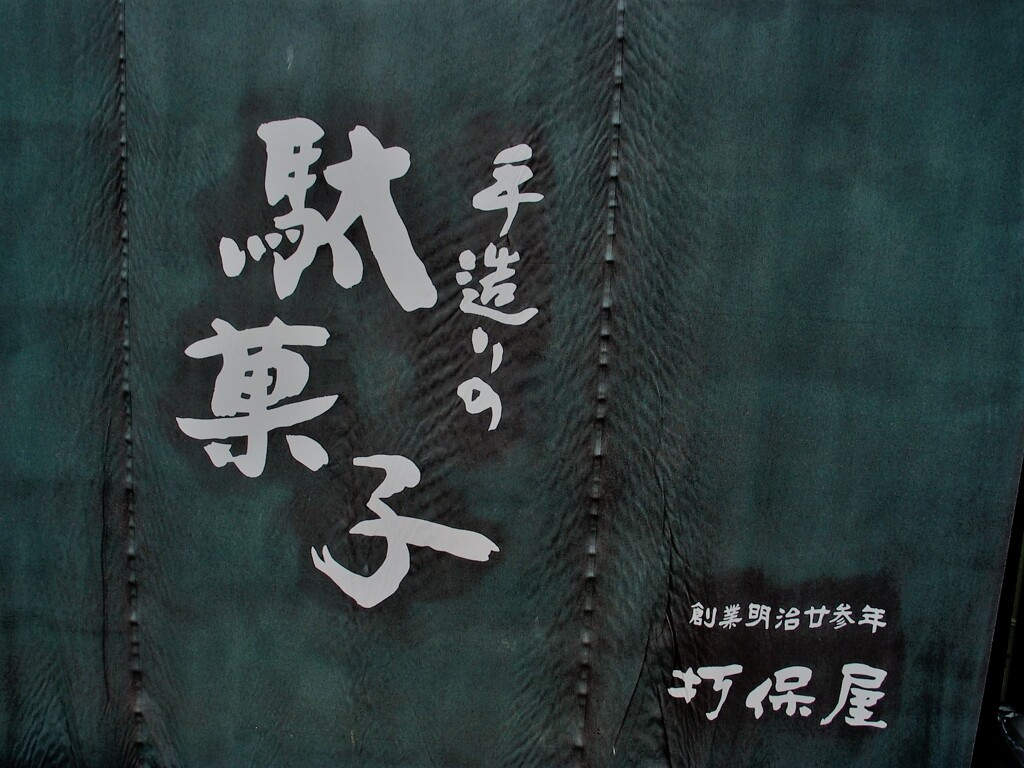 手造りの
駄菓子
創業明治廿参年
打保屋